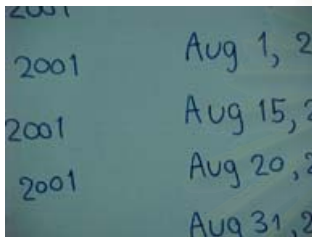 2001
2001 Aug 1, 2
2001 Aug 15, 2
2001 Aug 20, 2
Aug 31, 2